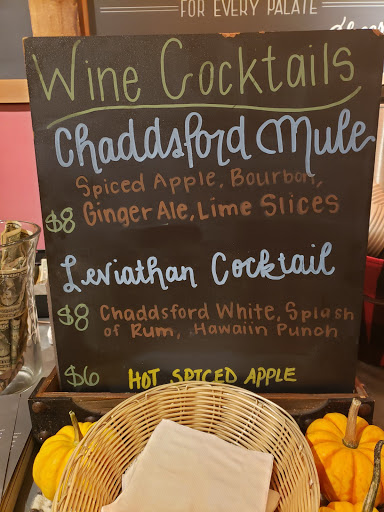 FOR EVERY PALATE
Wine Cocktails
Chaddsford Mule
Spiced Apple, Bourbon,
$8 Ginger Ale, Lime Slices
Leviathan Cocktail
$8 Chaddsford White, Splash
of Rum, Hawaiin Punch
$6 HOT SPICED APPLE